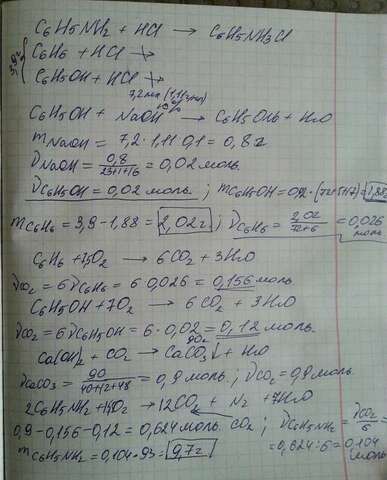 C6H5NH2 + HCl → C6H5NH3Cl
3,9г { C6H6 + HCl ↛
C6H5OH + HCl ↛
7,2 мл (1,11 г/мл)
10%
C6H5OH + NaOH → C6H5ONa + H2O
mNaOH = 7,2·1,11·0,1 = 0,8 г
νNaOH = 0,8/23+1+16 = 0,02 моль.
νC6H5OH = 0,02 моль ; mC6H5OH = 0,02·(72+5+17) = 1,88г
mC6H6 = 3,9 - 1,88 = 2,02г ; νC6H6 = 2,02/72+6 = 0,026 моль
C6H6 + 7,5O2 → 6CO2 + 3H2O
νCO2 = 6νC6H6 = 6·0,026 = 0,156 моль
C6H5OH + 7O2 → 6CO2 + 3H2O
νCO2 = 6νC6H5OH = 6·0,02 = 0,12 моль.
90г
Ca(OH)2 + CO2 → CaCO3↓ + H2O
νCaCO3 = 90/40+12+48 = 0,9 моль ; νCO2 = 0,9 моль.
2C6H5NH2 + O2 → 12CO2 + N2 + 7H2O
0,9 - 0,156 - 0,12 = 0,624 моль CO2 ; νC6H5NH2 = νCO2/6 =
= 0,624 : 6 = 0,104 моль
mC6H5NH2 = 0,104·93 = 9,7г